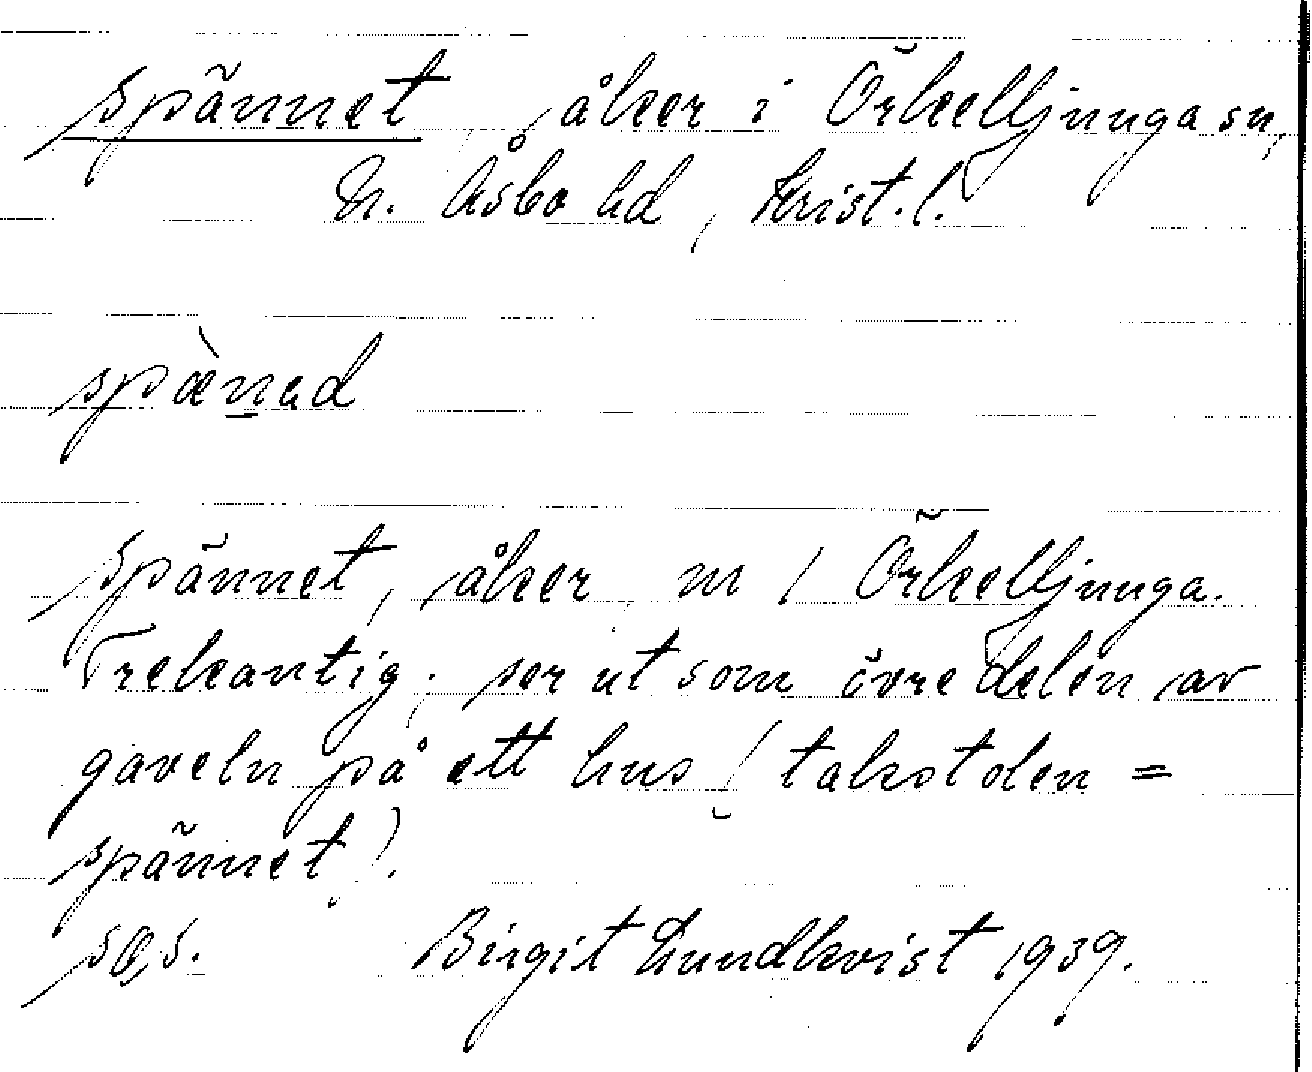 Spännet, åker i Örkelljunga sn,
N. Åsbo hd, Krist. l.
spæ̀nad
Spännet, åker, m / Örkelljunga.
Trekantig; ser ut som övre delen av
gaveln på ett hus (takstolen =
spännet).
Birgit Lundkvist 1939.